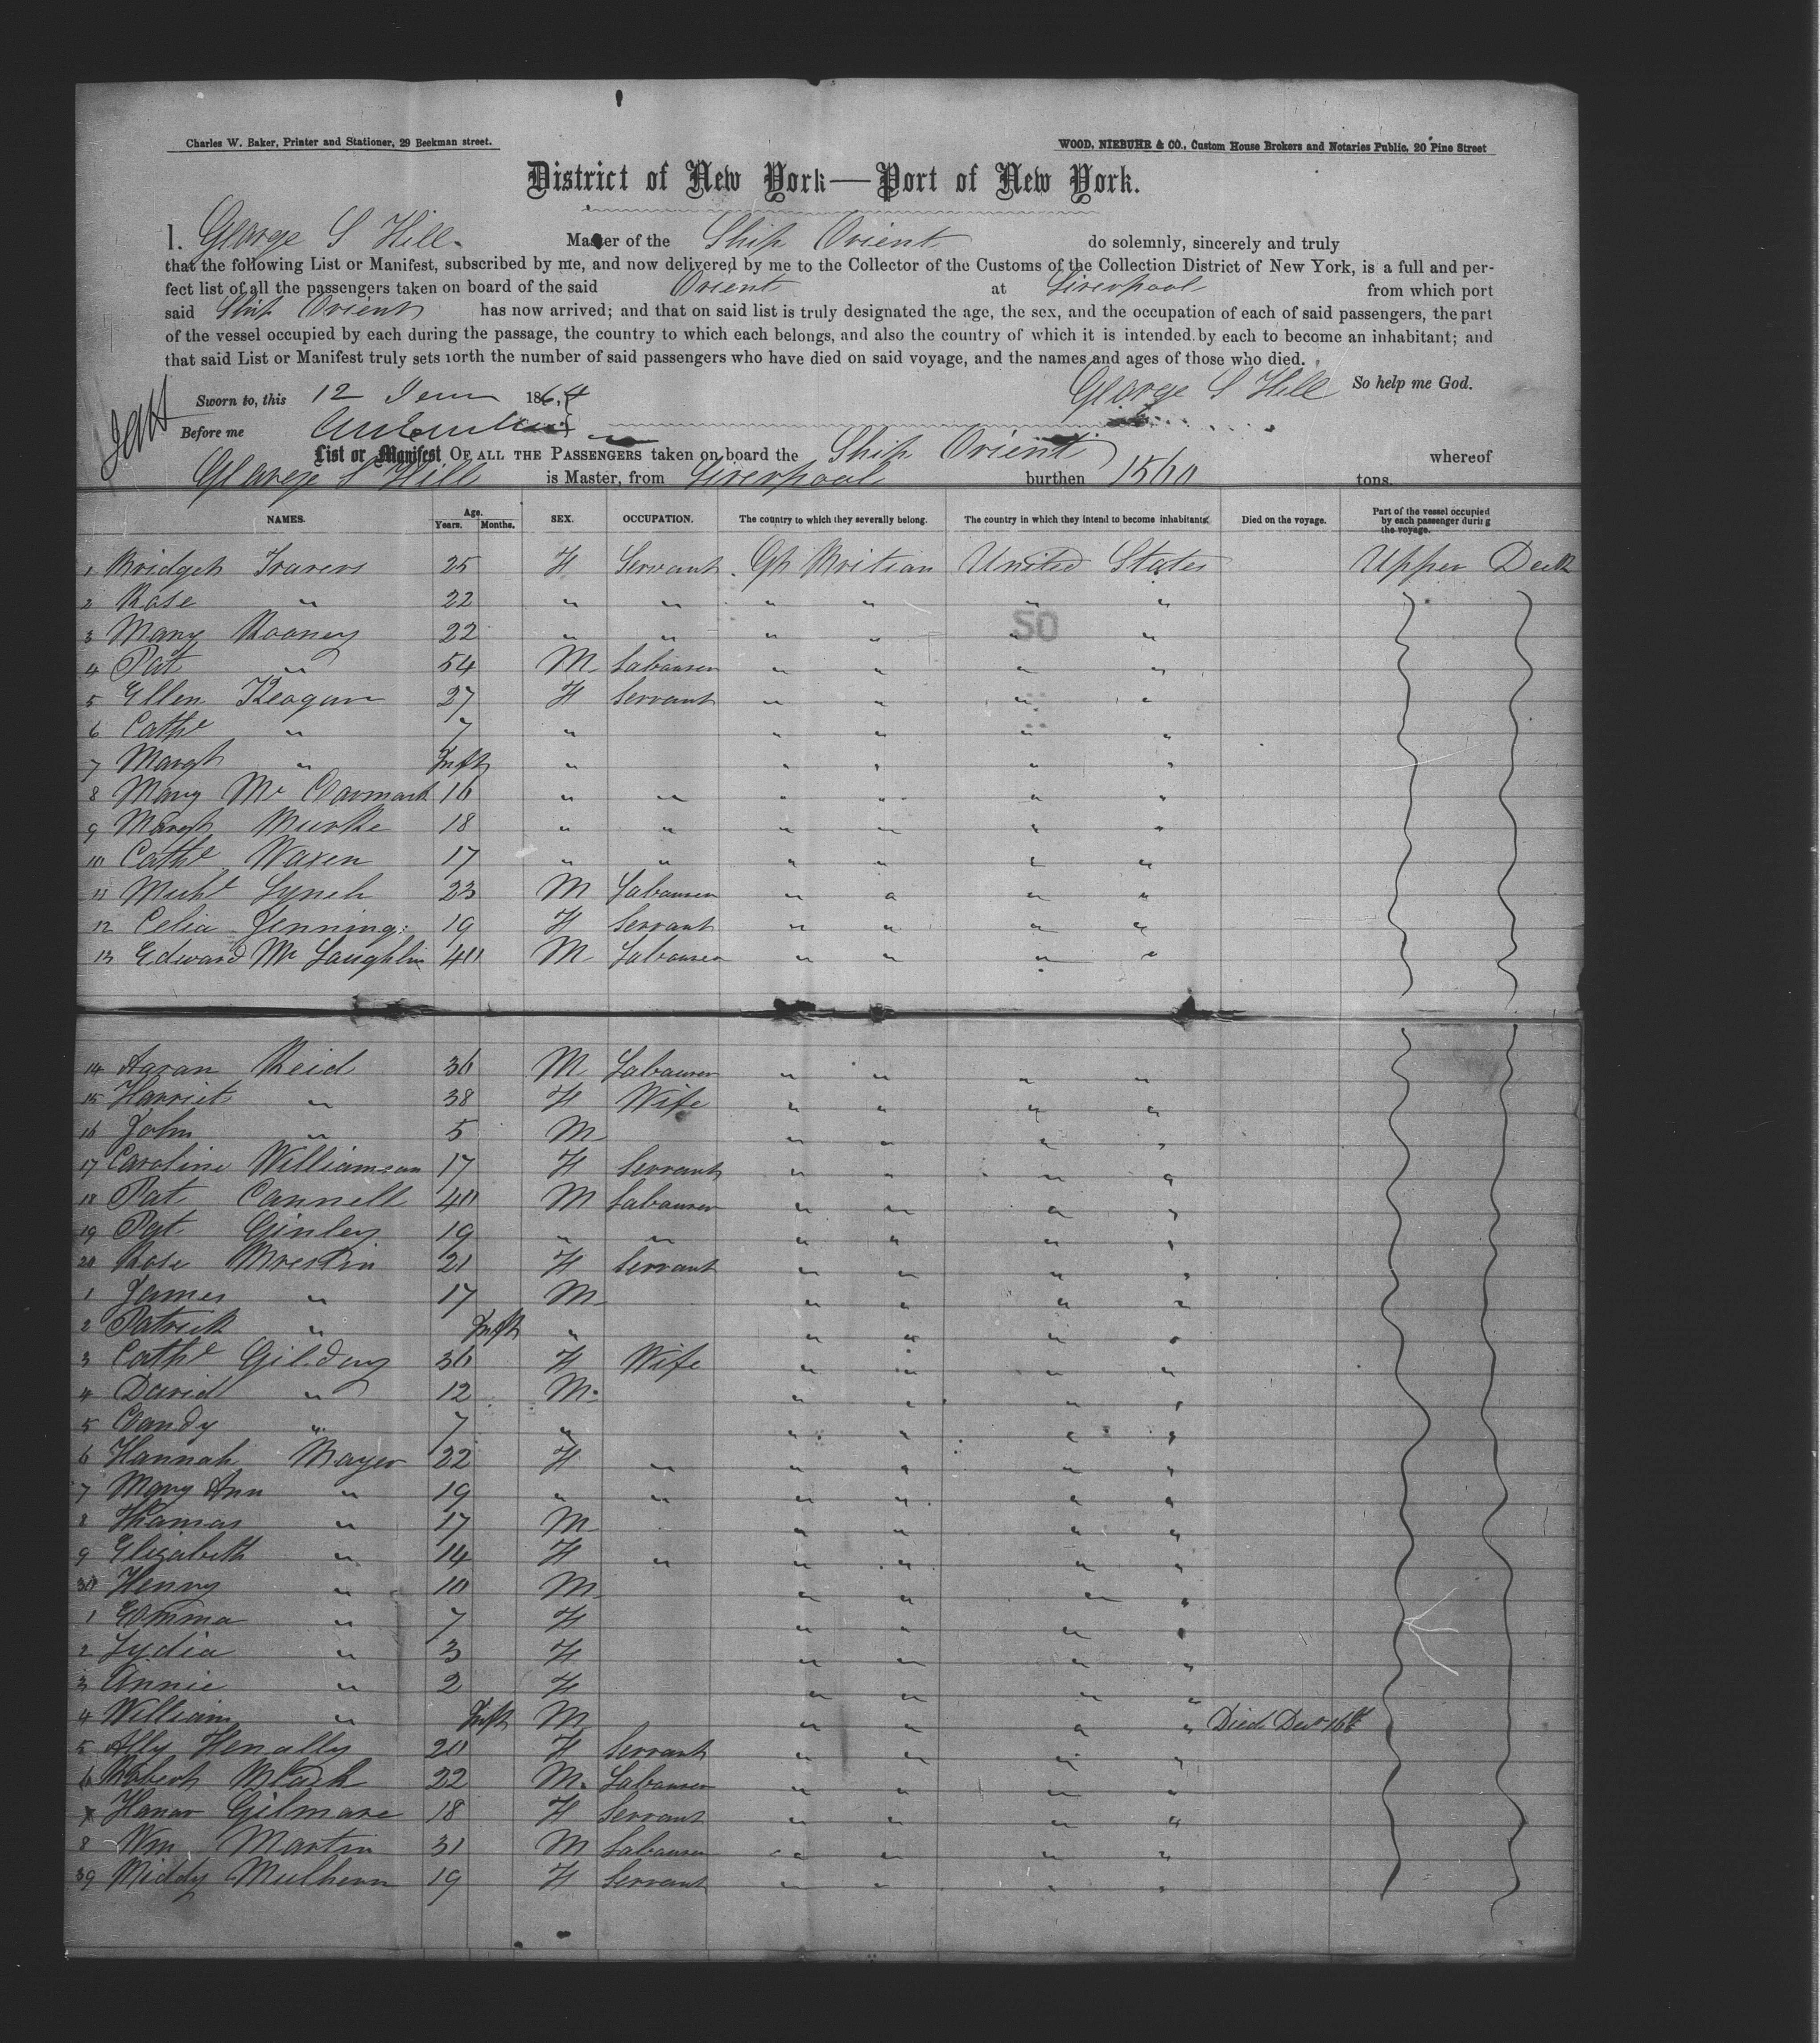 Charles W. Baker, Printer and Stationer, 29 Beekman street.
WOOD, NIEBUHR & CO., Custom House Brokers and Notaries Public, 20 Pine Street
District of New York—Port of New York.
I. George S Hill. Master of the Ship Orient do solemnly, sincerely and truly
that the following List or Manifest, subscribed by me, and now delivered by me to the Collector of the Customs of the Collection District of New York, is a full and per-
fect list of all the passengers taken on board of the said Orient at Liverpool from which port
said Ship Orient has now arrived; and that on said list is truly designated the age, the sex, and the occupation of each of said passengers, the part
of the vessel occupied by each during the passage, the country to which each belongs, and also the country of which it is intended by each to become an inhabitant; and
that said List or Manifest truly sets forth the number of said passengers who have died on said voyage, and the names and ages of those who died.
So help me God.
Sworn to, this 12 1864 George S Hill
Before me
List or Manifest OF ALL THE PASSENGERS taken on board the Ship Orient whereof
George S Hill is Master, from Liverpool burthen 1560 tons.
NAMES. Age. Years. Months. SEX. OCCUPATION. The country to which they severally belong. The country in which they intend to become inhabitants. Died on the voyage. Part of the vessel occupied by each passenger during the voyage.
1 Bridget Travers 25 F Servant Gt Britian United States Upper Deck
2 Rose " 22 " " " " " "
SO
3 Mary Rooney 22 " " " " " "
4 Pat " 54 M Labourer " " " "
5 Ellen Keagan 27 F Servant " " " "
6 Cathe " 7 " " " " "
7 Margt " Inft " " " " "
8 Mary Mc Cormack 16 " " " " " "
9 Margt Burke 18 " " " " " "
10 Cathe 17 " " " " " "
11 Michl Lynch 23 M Labourer " " " "
12 Celia Jennings 19 F Servant " " " "
13 Edward Mc Laughlin 40 M Labourer " " " "
14 Aaran Reid 36 M Labourer " " " "
15 Harriet " 38 F Wife " " " "
16 John " 5 M " " " "
17 Caroline Williamson 17 F Servant " " " "
18 Pat Connell 40 M Labourer " " " "
19 Pat Ginley 19 " " " " " "
20 Rose Breslin 21 F Servant " " " "
1 James " 17 M " " " "
2 Patrick " Inft " " " " "
3 Cathe Gildeny 36 F Wife " " " "
4 David " 12 M " " " "
5 Candy " 7 " " " " "
6 Hannah Mayer 22 F " " " " "
7 Mary Ann " 19 " " " " " "
8 Thomas " 17 M " " " "
9 Elizabeth " 14 F " " " " "
30 Henry " 10 M " " " "
1 Emma " 7 F " " " "
2 Lydia " 3 F " " " "
3 Annie " 2 F " " " "
4 William " Inft M " " " " Died Decr 16th
5 Ally Henally 20 F Servant " " " "
6 Robert Black 22 M. Labourer " " " "
7 Gilmore 18 F Servant " " " "
8 Wm Martin 31 M Labourer " " " "
39 Biddy Mulhern 19 F Servant " " " "